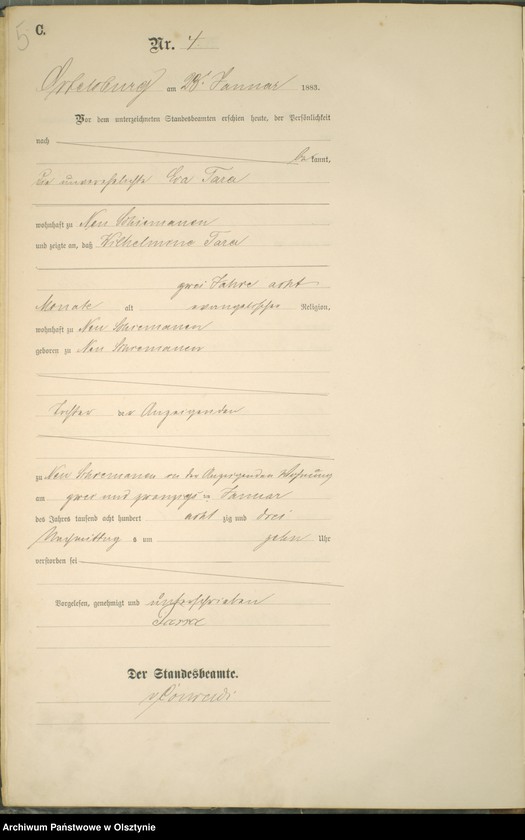 5
C.
Nr. 4.
Ortelsburg am 28 Januar 1883.
Vor dem unterzeichneten Standesbeamten erschien heute, der Persönlichkeit
nach
bekannt,
die unverehelichte Eva Tara
wohnhaft zu Neu Schiemanen
und zeigte an, daß Wilhelmine Tara
zwei Jahre acht
Monate alt evangelischer Religion,
wohnhaft zu Neu Schiemanen
geboren zu Neu Schiemanen
Tochter der Anzeigenden
zu Neu Schiemanen in der Anzeigenden Wohnung
am zwei und zwanzigsten Januar
des Jahres tausend acht hundert acht zig und drei
Nachmittag s um zehn Uhr
verstorben sei
Vorgelesen, genehmigt und unterschrieben
Der Standesbeamte.
Archiwum Państwowe w Olsztynie